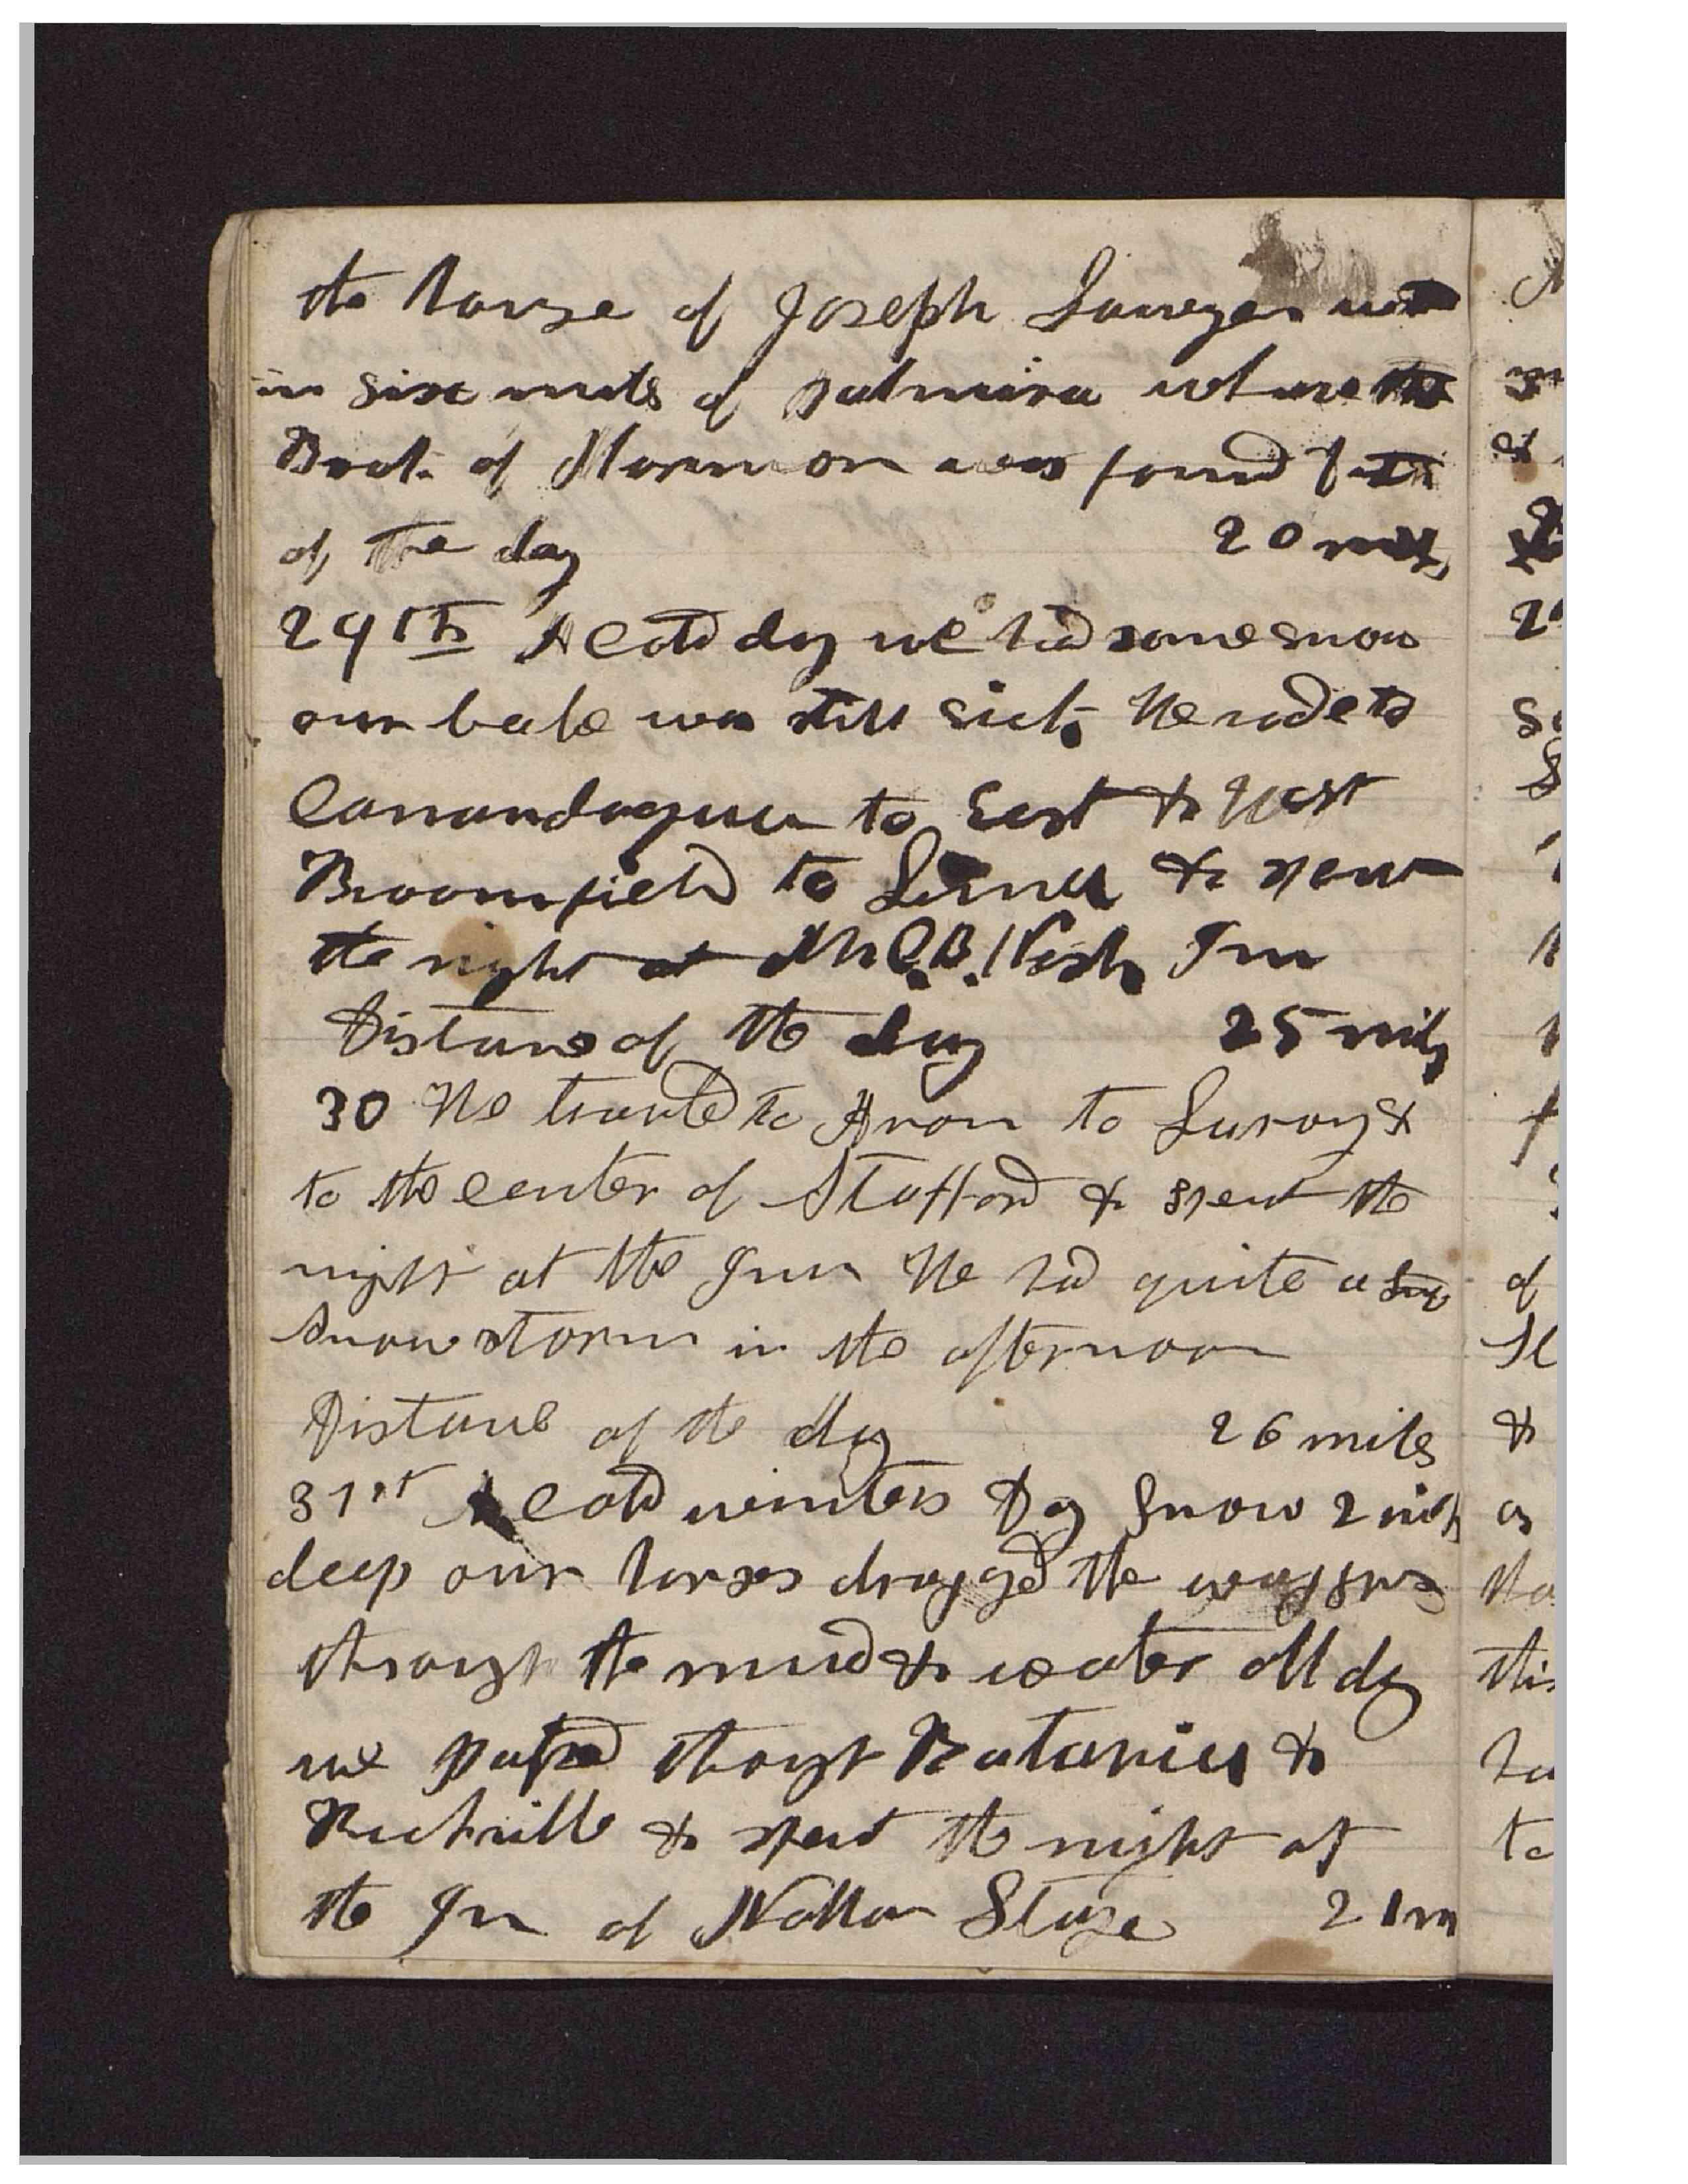 the house of Joseph Sawyer with
in six miles of palmira whare the
Book of Mormon was found
of the day 20 mils
29th A cold day we had some snow
our babe was still sick We rode to
Canandaguua to East & West
Broomfield to Lima & spent
the night at Mr C. B. Nash Inn
Distance of the day 25 mils
30 We traveled to Avon to Luroy &
to the center of Stafford & spent the
night at the Inn We had quite a
Snow storm in the afternoon
Distance of the day 26 miles
31st A cold winters Day Snow 2 inch
deep our horses dragged the waggons
through the mud & water all day
we passed through Batavia &
Richville & spent the night at
the Inn of Nathan Stage 21 m